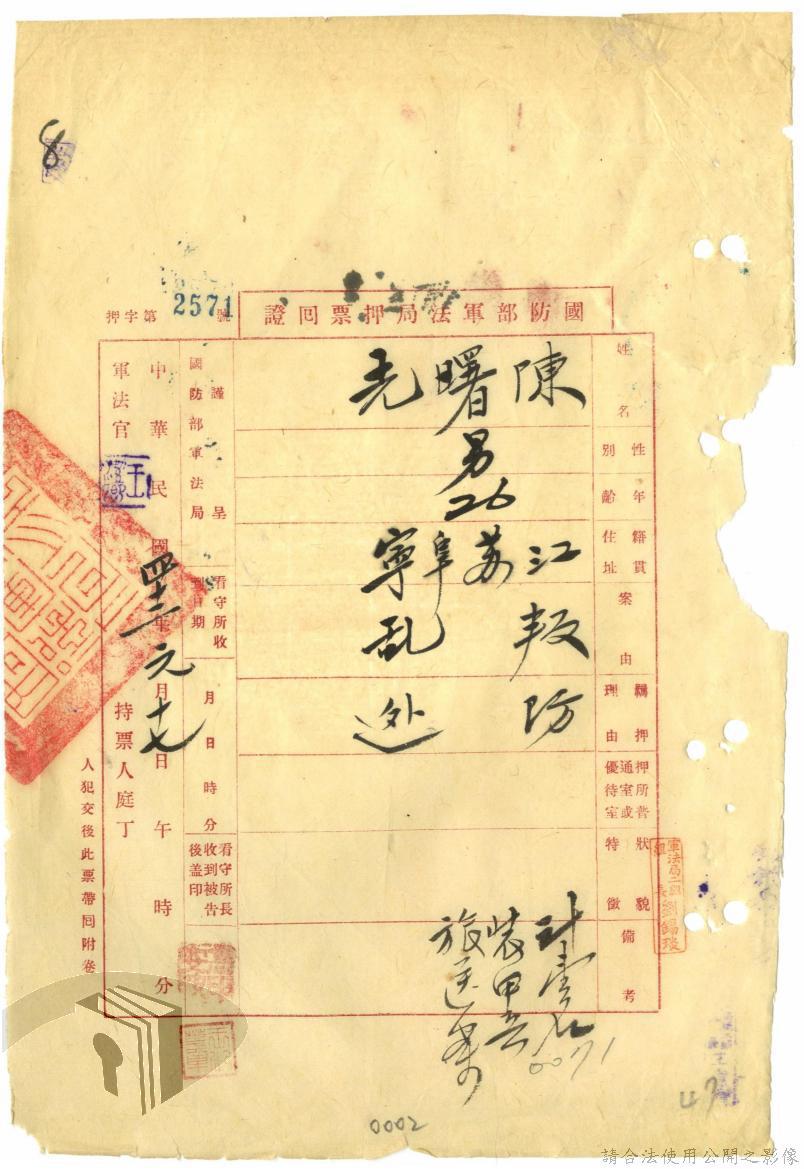 8
國防部軍法局押票回證
押字第2571號
姓名
陳曙光
性別
男
年齡
26
籍貫
住址
江苏
阜寧
案由
叛乱
羈押理由
防逃
押所普通室或優待室
狀貌特徵
備考
裝甲兵
旅送案
0071
謹呈
國防部軍法局
看守所收到日期
月日時分
看守所長收到被告後盖印
中華民國四十二年元月十七日午時分
軍法官
持票人庭丁
人犯交後此票帶回附卷
軍法局二組組長劉錫琰
47
0002
請合法使用公開之影像